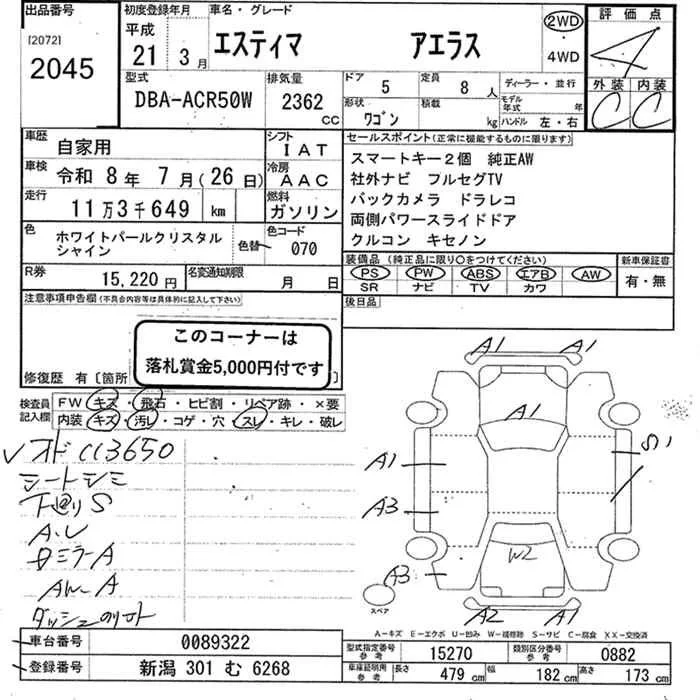 出品番号
[2072]
2045
初度登録年月
平成
21 3月
車名・グレード
エスティマ アエラス
2WD
・
4WD
評価点
4
外装 内装
C C
型式
DBA-ACR50W
排気量
2362
CC
ドア
5
定員
8人
形状
ワゴン
積載
kg
ディーラー・並行
モデル年式 年
ハンドル 左・右
車歴
自家用
シフト
IAT
車検
令和 8年 7月(26日)
冷房
AAC
走行
11万3千649 km
燃料
ガソリン
色
ホワイトパールクリスタル
シャイン
色替
色コード
070
R券
15,220円
名変通知期限
月 日
セールスポイント(正常に機能するものに限ります)
スマートキー2個 純正AW
社外ナビ フルセグTV
バックカメラ ドラレコ
両側パワースライドドア
クルコン キセノン
装備品(純正品に限り○をつけてください)
PS PW ABS エアB AW
SR ナビ TV カワ
新車保証書
有・無
後日品
注意事項申告欄(不具合内容等は具体的に記入して下さい)
このコーナーは
落札賞金5,000円付です
修復歴 有〔箇所 〕
検査員
記入欄
FW・キズ・飛石・ヒビ割・リペア跡・×要
内装・キズ・汚レ・コゲ・穴・スレ・キレ・破レ
オド 113650
シートシミ
下廻りS
A.U
ロミラーA
AW A
ダッシュ
A1 A1
A1
A1
S1
A3
A3
W2
A2 A1
スペア
A-キズ E-エクボ U-凹み W-補修跡 S-サビ C-腐食 XX-交換済
車台番号
0089322
登録番号
新潟 301 む 6268
型式指定番号
参考
15270
類別区分番号
参考
0882
車庫証明用
参考
長さ
479 cm
幅
182 cm
高さ
173 cm